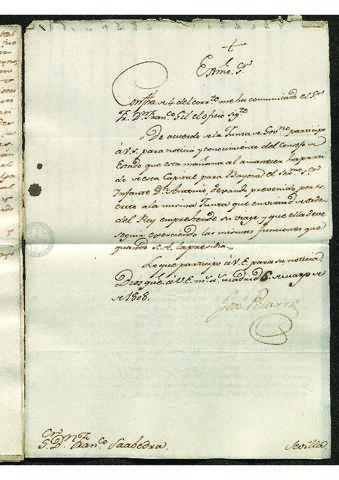 Exmo. Sr.
Con fha. de 4 del corrte. me ha comunicado el Sr.
Fr. Dn. Franco. Gil el oficio sigte.
De acuerdo de la Junta de Govno. participo
à V.E. para noticia y conocimiento del Consejo de
Estado que esta mañana al amanecer ha parti-
do de esta Capital para Bayona el Sermo. Sor.
Infante Dn. Antonio, dexando prevenido por es-
crito a la misma Junta que en virtud de orden
del Rey emprehendia su viage, y que ella debe
seguir exerciendo las mismas funciones que
quando S.A. la presidia.
Lo que participo à V.E. para su noticia
Dios gue. à V.E. ms. as. Madrid 6 de mayo de
de 1808.
José Pizarro
Sr. Dn. Franco. Saabedra.
Sevilla